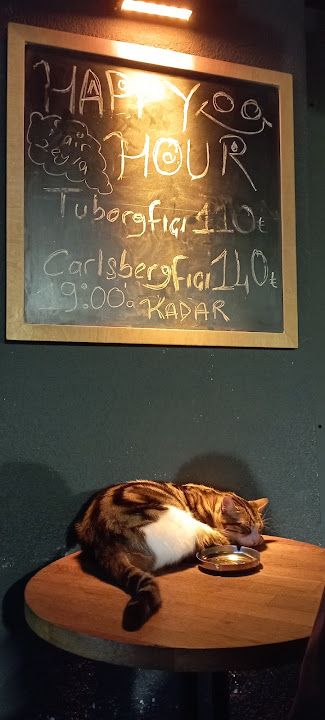 HAPPY
HOUR
Şair
Leyla
Tuborg fıçı 110₺
Carlsberg fıçı 140₺
19:00'a KADAR